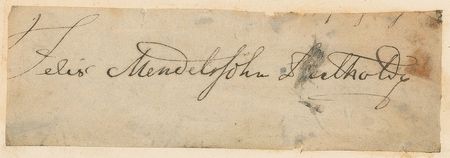 Felix Mendelssohn Bartholdy